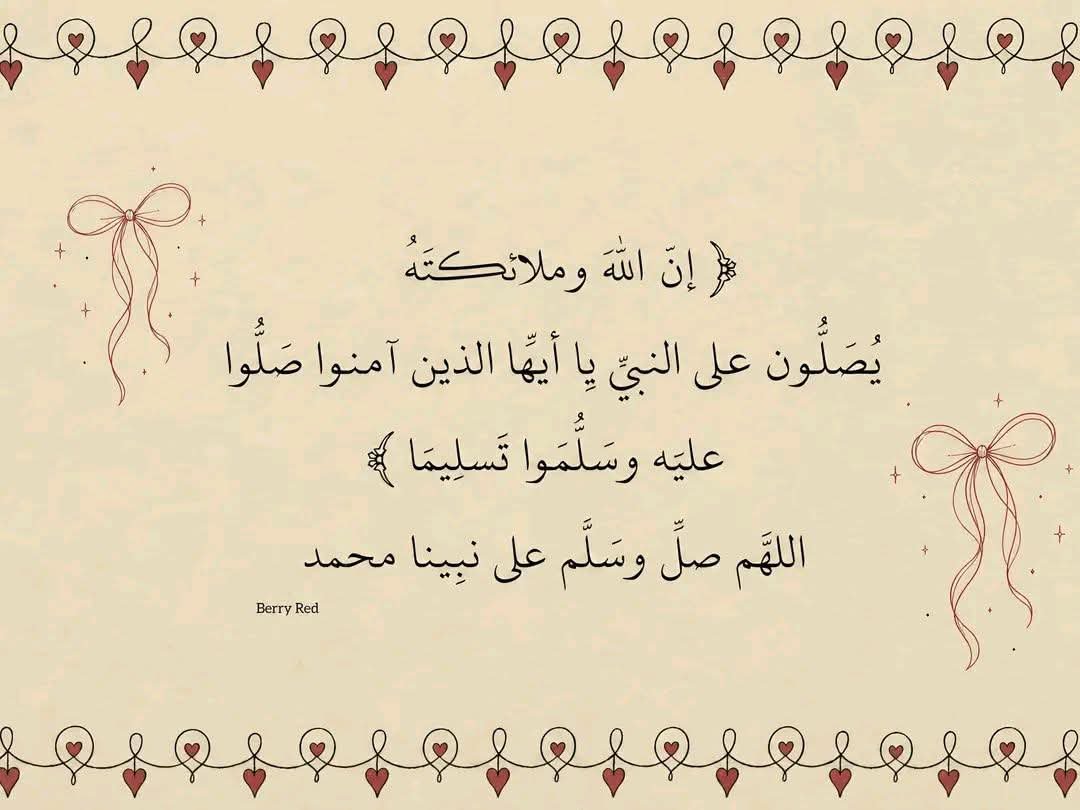 ﴿ إنّ اللّٰهَ وملائكتَهُ
يُصَلُّون على النبيِّ يِا أيهِّا الذين آمنوا صَلُّوا
عليَه وسَلُّمَوا تَسلِيمَا ﴾
اللهَّم صلِّ وسَلَّم على نبِينا محمد
Berry Red